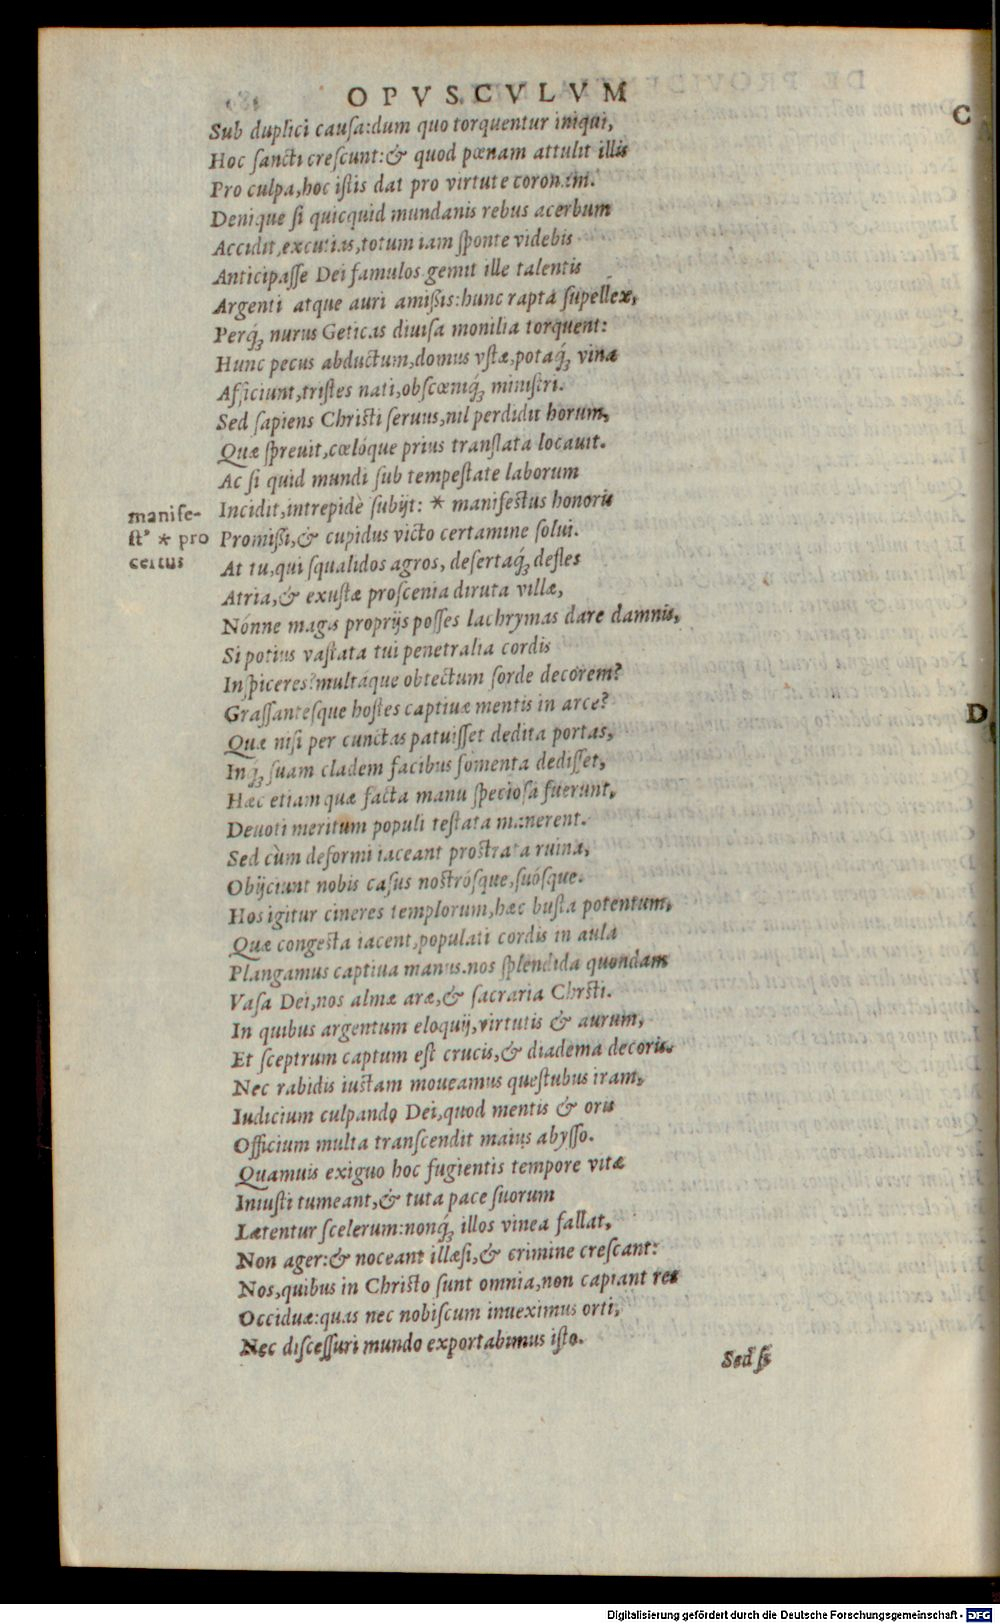 OPVSCVLVM
Sub duplici cauſa:dum quo torquentur iniqui,
Hoc ſancti creſcunt:& quod pœnam attulit illis
Pro culpa,hoc iſtis dat pro virtute coronam.
Denique ſi quicquid mundanis rebus acerbum
Accidit,excutias,totum iam ſponte videbis
Anticipaſſe Dei famulos.gemit ille talentis
Argenti atque auri amißis:hunc rapta ſupellex,
Perq́ꝫ nurus Geticas diuiſa monilia torquent:
Hunc pecus abductum,domus vſtæ,potaq́ꝫ vina
Afficiunt,triſtes nati,obſcœniq́ꝫ miniſtri.
Sed ſapiens Chriſti ſeruus,nil perdidit horum,
Quæ ſpreuit,cœlóque prius tranſlata locauit.
Ac ſi quid mundi ſub tempeſtate laborum
Incidit,intrepidè ſubijt: * manifeſtus honoris
manife-
ſt⁹ * pro
certus
Promißi,& cupidus victo certamine ſolui.
At tu,qui ſqualidos agros, deſertaq́ꝫ defles
Atria,& exuſtæ proſcenia diruta villæ,
Nónne magis proprijs poſſes lachrymas dare damnis,
Si potius vaſtata tui penetralia cordis
Inſpiceres?multáque obtectum ſorde decorem?
Graſſanteſque hoſtes captiuæ mentis in arce?
Quæ niſi per cunctas patuiſſet dedita portas,
Inq́ꝫ ſuam cladem facibus fomenta dediſſet,
Hæc etiam quæ facta manu ſpecioſa fuerunt,
Deuoti meritum populi teſtata manerent.
Sed cùm deformi iaceant proſtrata ruina,
Obijciunt nobis caſus noſtróſque,ſuóſque.
Hos igitur cineres templorum,hæc buſta potentum,
Quæ congeſta iacent,populati cordis in aula
Plangamus captiua manus.nos ſplendida quondam
Vaſa Dei,nos almæ aræ,& ſacraria Chrſti.
In quibus argentum eloquij,virtutis & aurum,
Et ſceptrum captum eſt crucis,& diadema decoris.
Nec rabidis iuſtam moueamus queſtubus iram,
Iudicium culpando Dei,quod mentis & oris
Officium multa tranſcendit maius abyſſo.
Quamuis exiguo hoc fugientis tempore vitæ
Iniuſti tumeant,& tuta pace ſuorum
Lætentur ſcelerum:nonq́ꝫ illos vinea fallat,
Non ager:& noceant illæſi,& crimine creſcant:
Nos,quibus in Chriſto ſunt omnia,non capiant res
Occiduæ:quas nec nobiſcum inueximus orti,
Nec diſceſſuri mundo exportabimus iſto.
Sed ſi
C
D
Digitalisierung gefördert durch die Deutsche Forschungsgemeinschaft - DFG